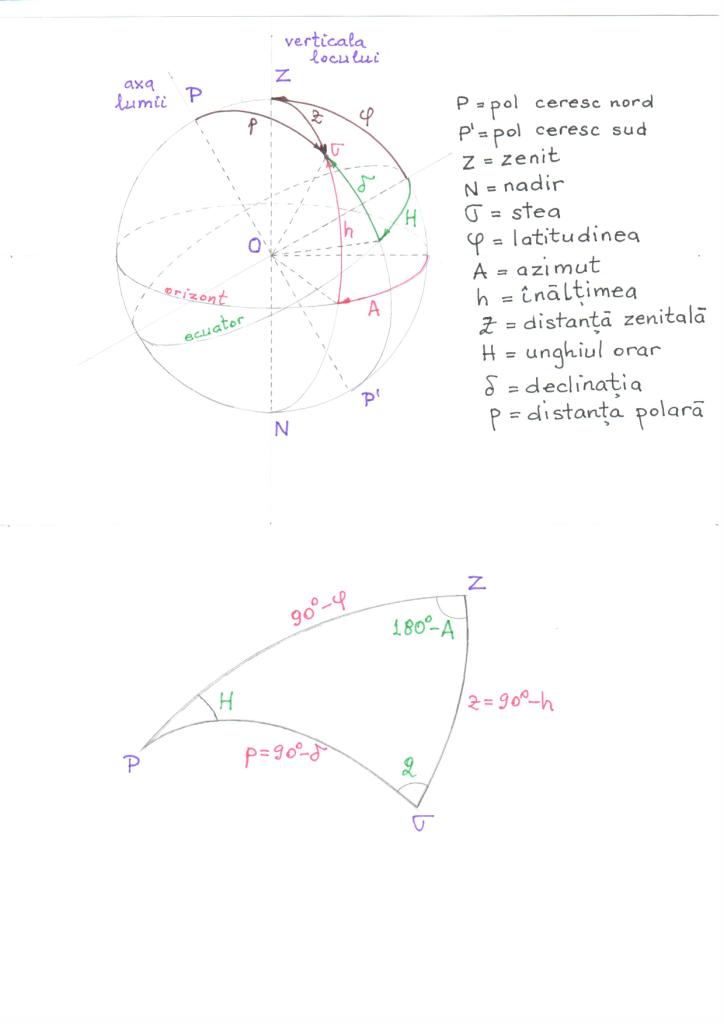 verticala
locului
Z
axa
lumii
P
z
φ
p
σ
δ
H
h
O
orizont
A
ecuator
P'
N
P = pol ceresc nord
P' = pol ceresc sud
Z = zenit
N = nadir
σ = stea
φ = latitudinea
A = azimut
h = înălțimea
z = distanță zenitală
H = unghiul orar
δ = declinația
p = distanța polară
Z
90°-φ
180°-A
H
z=90°-h
p=90°-δ
P
σ